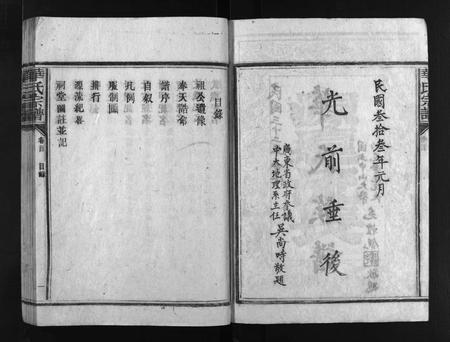 華氏宗譜
民國叁拾叁年元月
光前垂後
廣東省政府參議
中大地理系主任
吳尚時敬題
目錄
祖公遺像
奉天誥命
譜序
自叙
凡例
服制圖
排行
源流紀畧
祠堂圖註並記
華氏宗譜
卷首
目錄
一